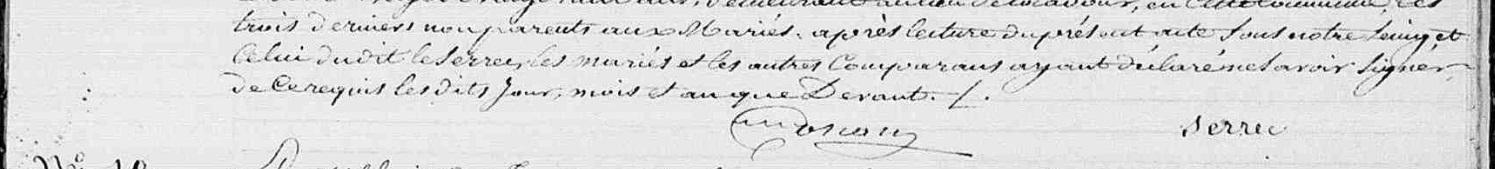 demeurant au lieu de en cette commune, les
trois derniers non parents aux Mariés. après lecture du présent acte sous notre seing et
Celui dudit le Serrec, les mariés et les autres Comparans ayant déclaré ne savoir signer,
de ce requis les dits Jour, mois et an que Devant. /.
Serrec
Nº